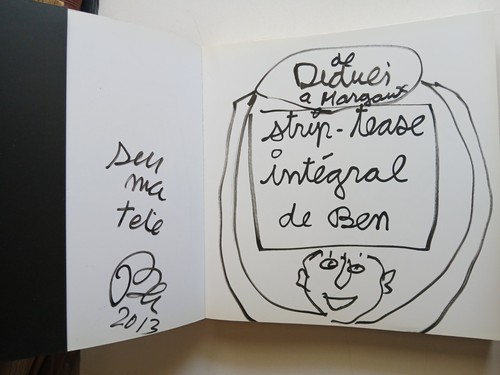 sur
ma
tete
Ben
2013
de
Didier
a Margaux
strip-tease
intégral
de Ben